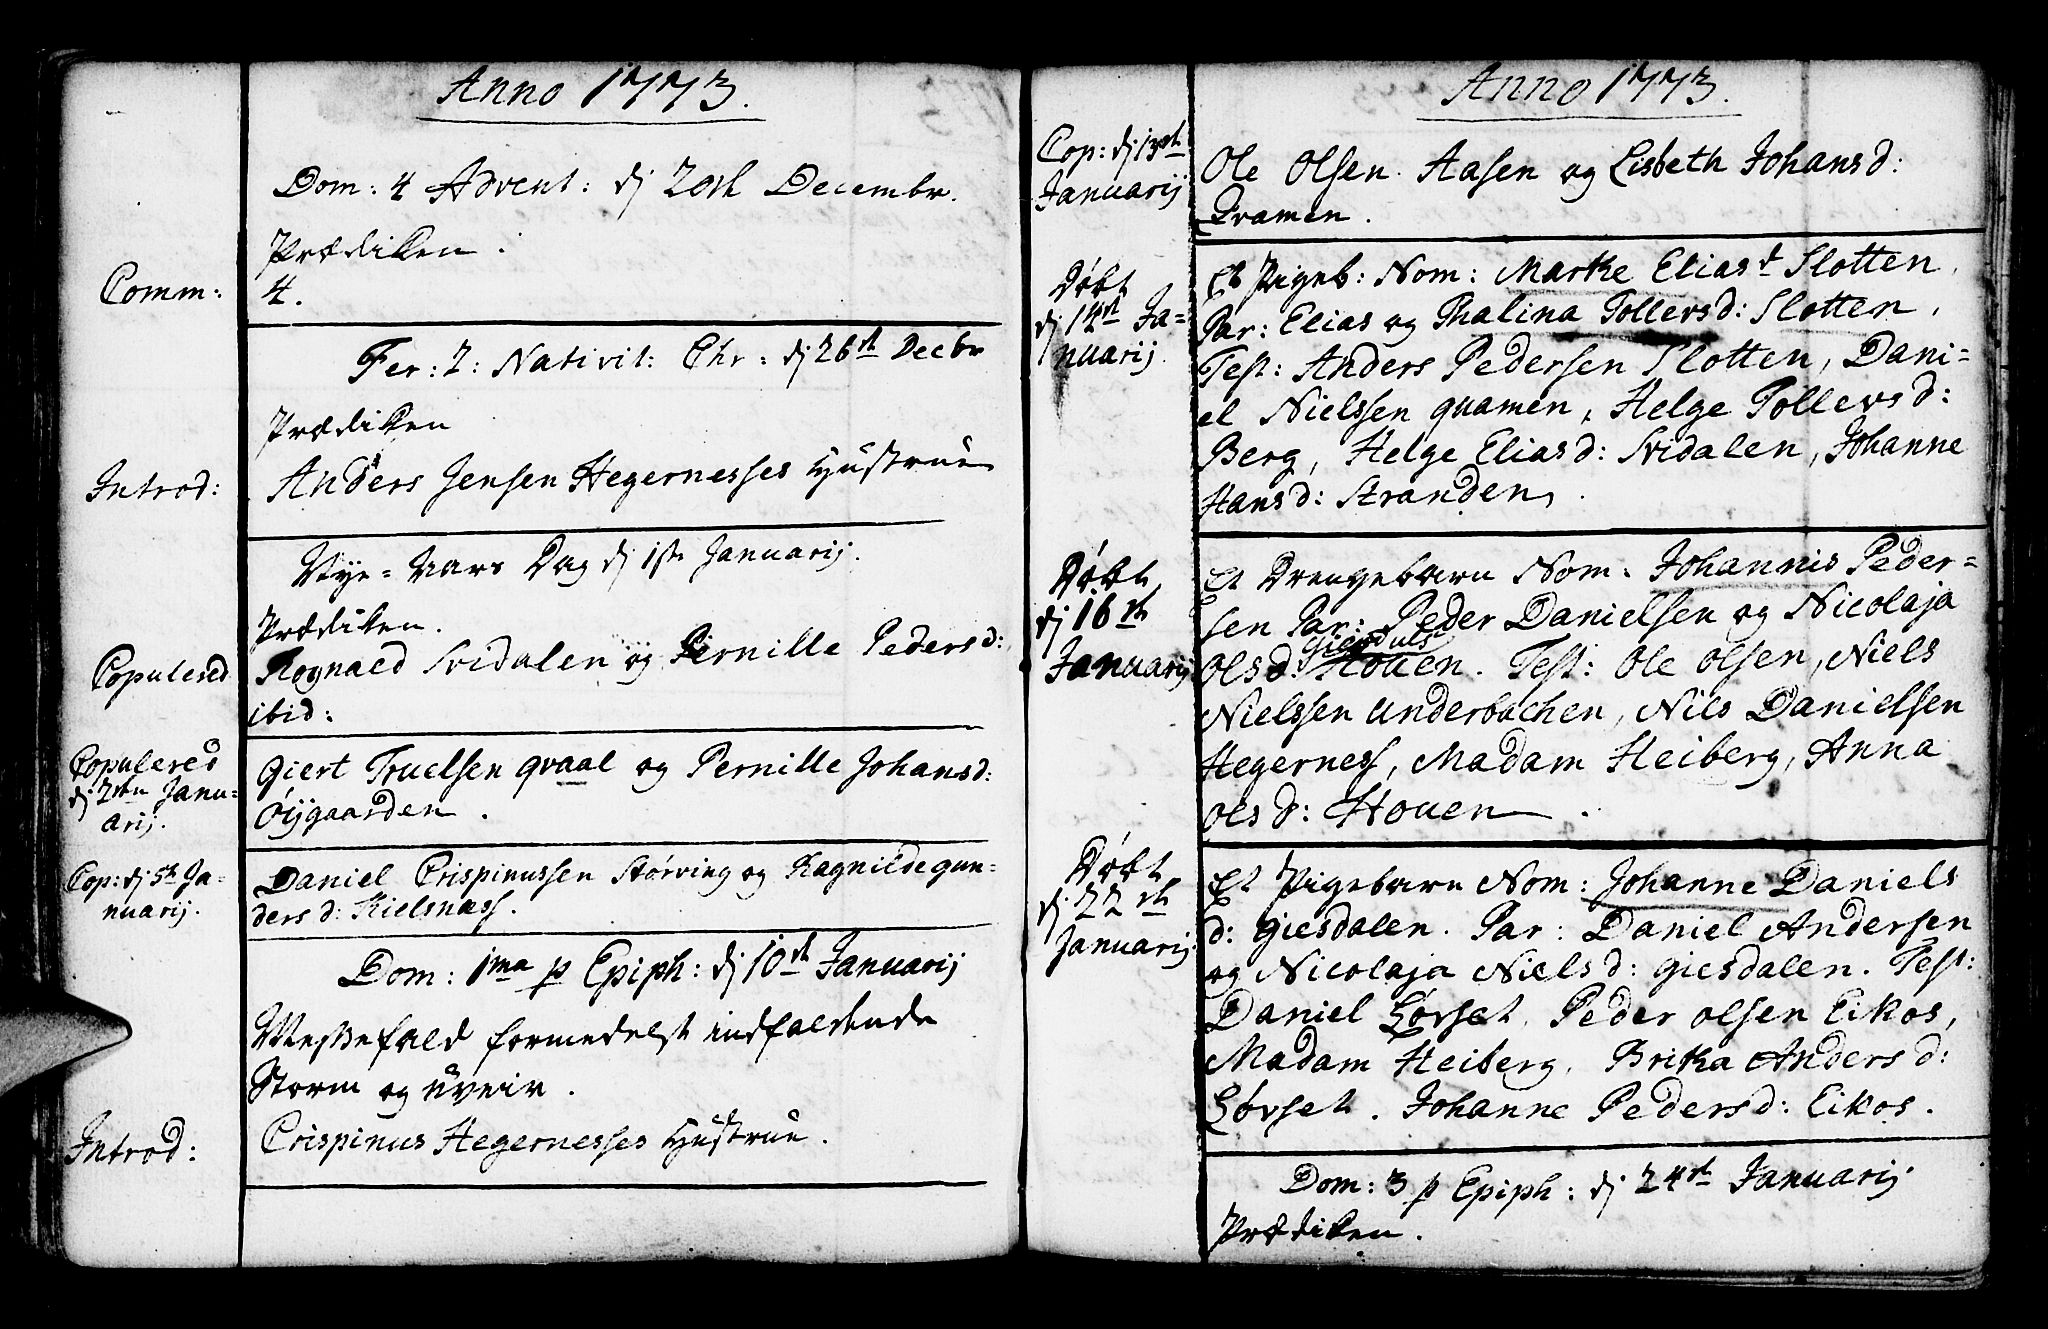 Anno 1773.
Dom: 4 Advent: dj 20de Decembr.
Prædiken.
Comm: 4.
Fer: 2: Nativit: Chr: dj 26de Decbr
Prædiken
Introd: Anders Jensen Hegernesses Hustrue
Nye-Aars Dag dj 1ste Januarij.
Prædiken.
Copulered Rognald Svidalen og Pernille Pedersd:
ibid:
Copulered
dj 2den Janu=
arij.
Giert Truelsen qvaal og Pernille Johansd:
Øijgaarden.
Cop: dj 5te Ja=
nuarij.
Daniel Crispinussen Størving og Ragnilde gun=
dersd: Kielsnæss.
Dom: 1ma p Epiph: dj 10de Januarij
Messefald formedelst indfaldende
Storm og uveir.
Introd: Crispinus Hegernesses Hustrue.
Anno 1773.
Cop: dj 13de
Januarij
Ole Olsen Aasen og Lisbeth Johansd:
Dramen.
Døbt
dj 14de Ja=
nuarij.
Et Pigeb: Nom: Marthe Eliasd Slotten.
Par: Elias og Thalina Tollevsd: Slotten.
Test: Anders Pedersen Slotten, Dani=
el Nielssen quamen, Helge Tollevsd:
Berg, Helge Eliasd: Svidalen, Johanne
Hansd: Stranden.
Døbt
dj 16de
Januarij
Et Drengebarn Nom. Johannis Peder=
sen Par: Peder Danielsen og Nicolaja
Giesdals
Olsd: Houen. Test: Ole Olsen, Niels
Nielssen underbachen, Nils Danielsen
Hegerness, Madam Heiberg, Anna
Olsd: Houen.
Døbt
dj 22de
Januarij
Et Pigebarn Nom: Johanne Daniels
d: giesdalen. Par: Daniel Andersen
og Nicolaja Nielsd: giesdalen. Test:
Daniel Lørset, Peder Olsen Eikos,
Madam Heiberg, Britha Andersd:
Lørset. Johanne Pedersd: Eikos.
Dom: 3 p Epiph: dj 24de Januarij
Prædiken.